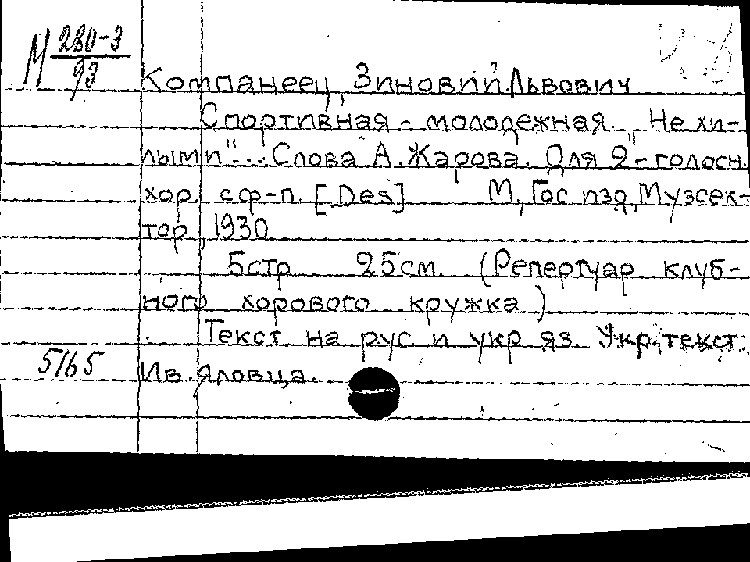 М 280-3
93
Компанеец, Зиновий Львович
Спортивная - молодежная. "Не хи-
лыми"... Слова А. Жарова. Для 2-голосн.
хор. с ф-п. [Des] М, Гос изд, Музсек-
тор, 1930
5стр 25см. (Репертуар клуб-
ного хорового кружка)
Текст на рус и укр яз. Укр. текст.
5165 Ив. Яловца.